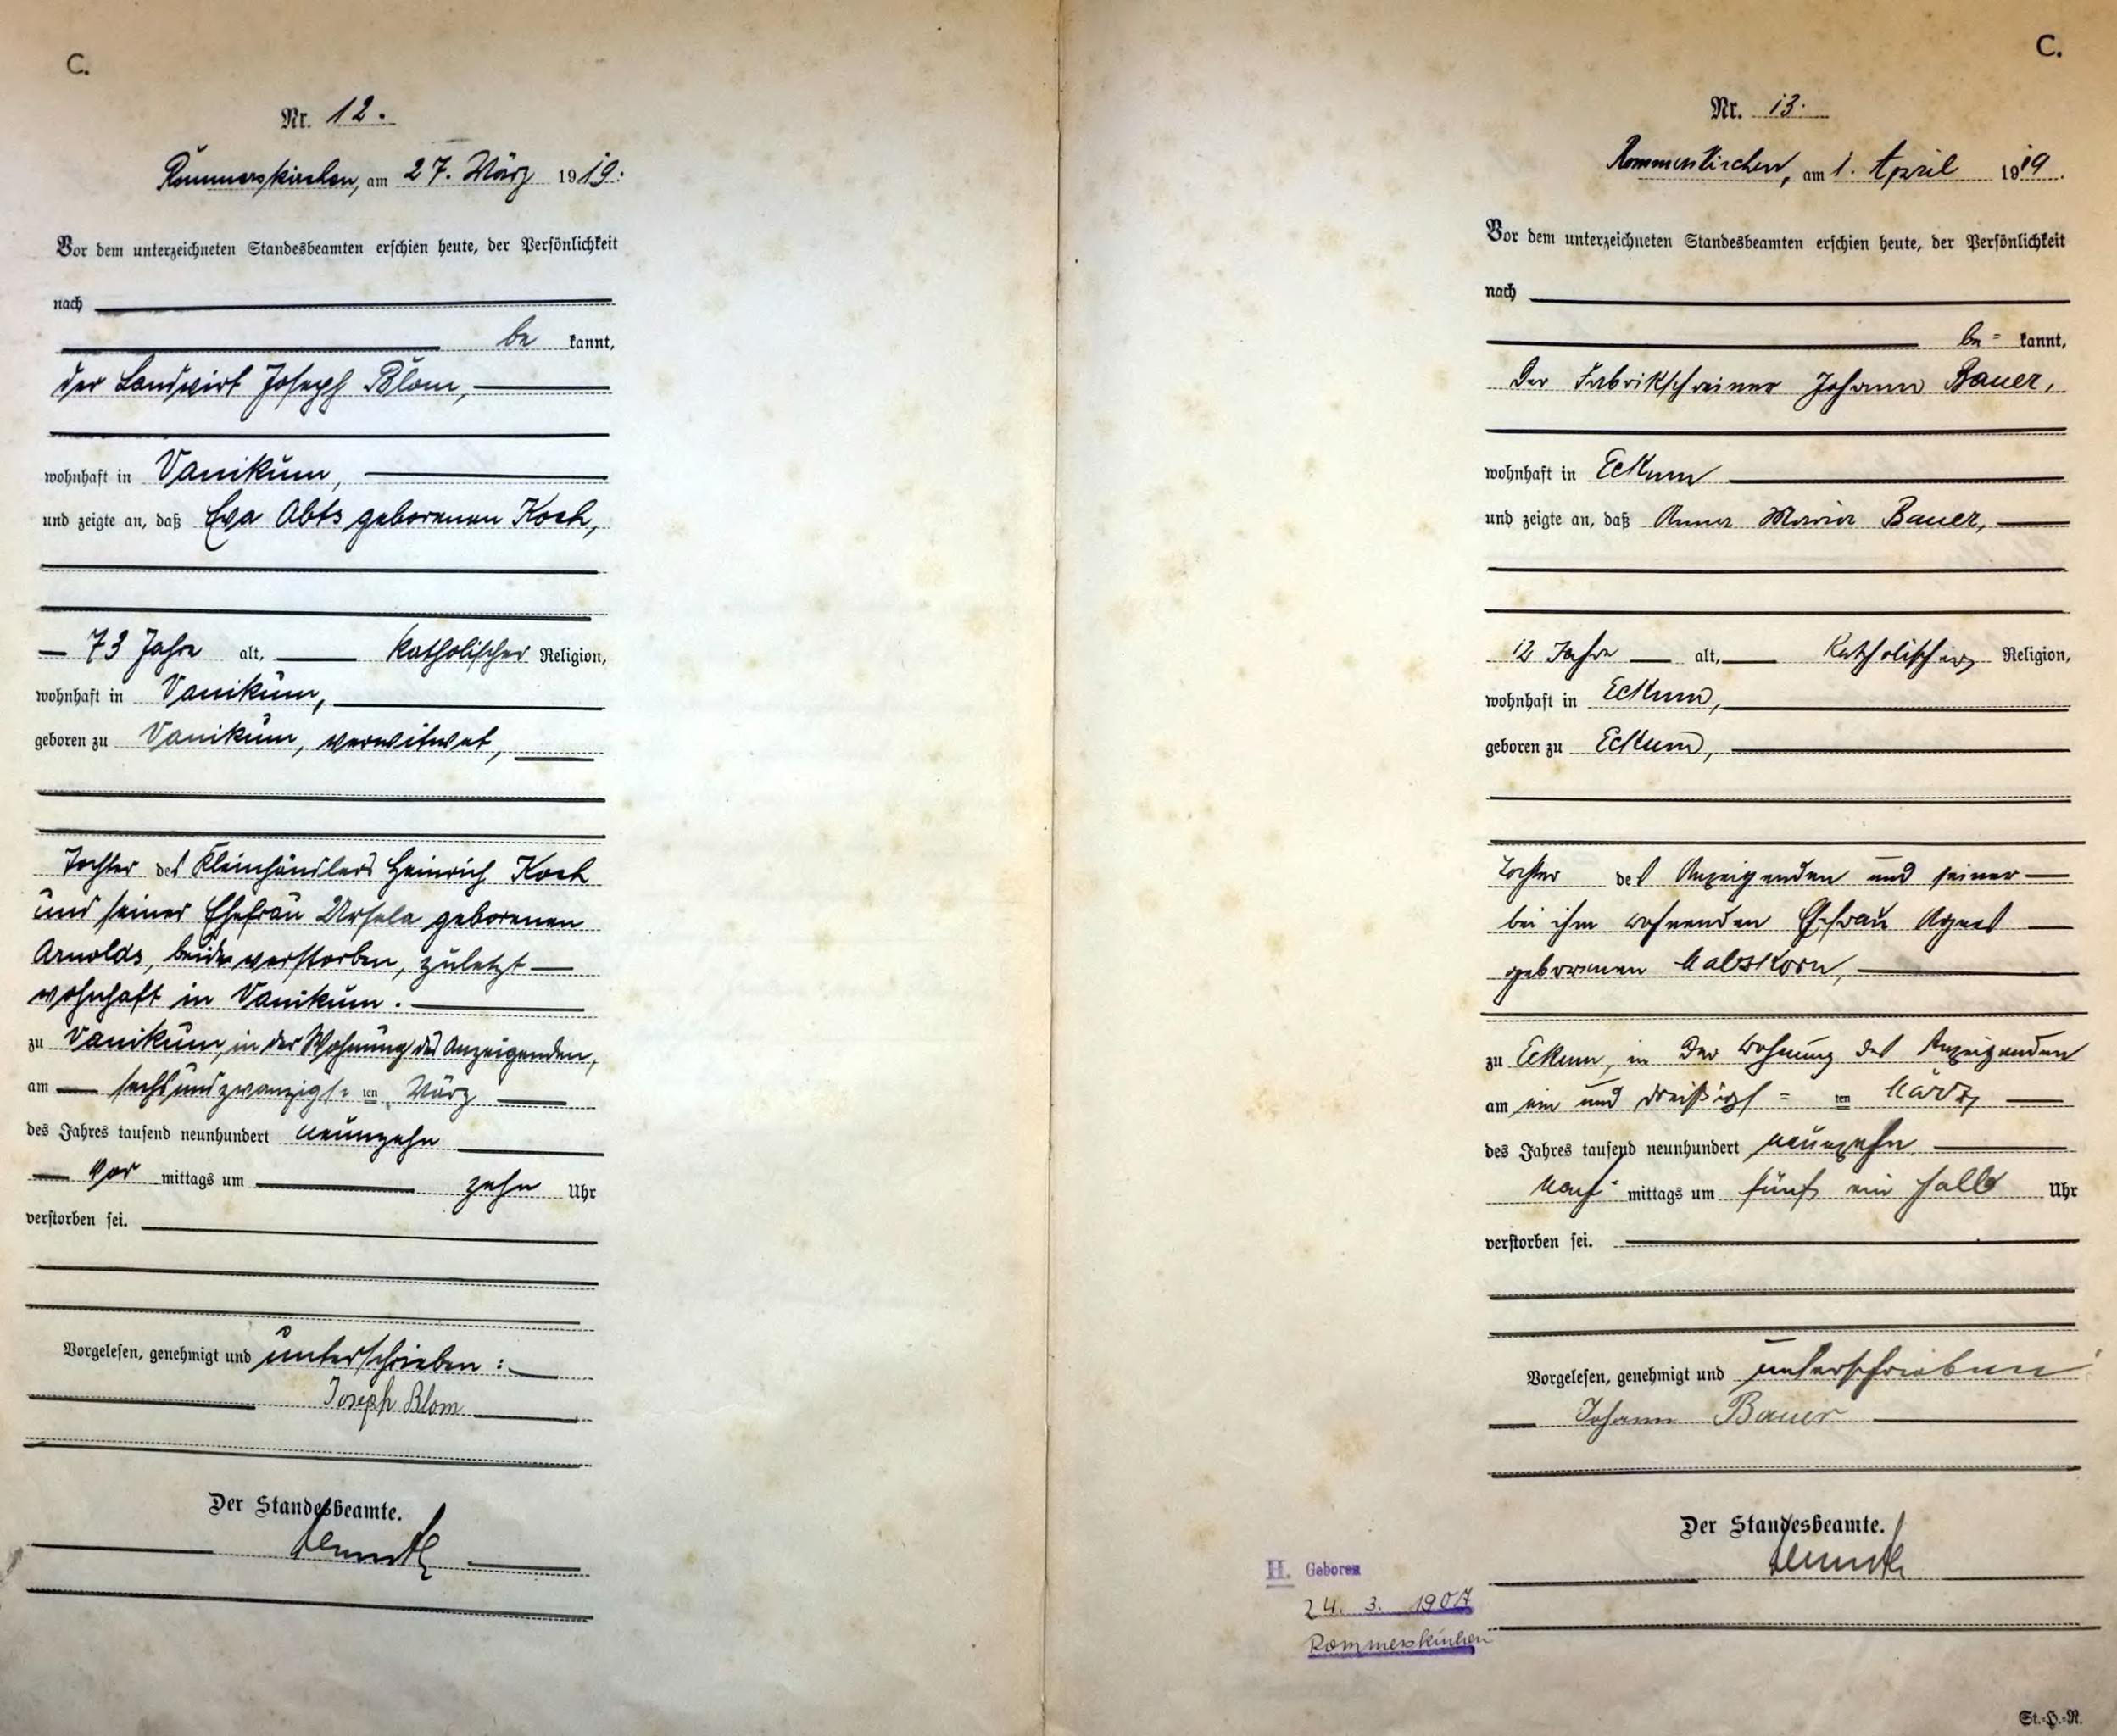 C.
Nr. 12.
Rommerskirchen, am 27. März 1919.
Vor dem unterzeichneten Standesbeamten erschien heute, der Persönlichkeit
nach
be kannt,
der Landwirt Joseph Blom,
wohnhaft in Vanikum,
und zeigte an, daß Eva Abts geborenen Koch,
73 Jahre alt, katholischer Religion,
wohnhaft in Vanikum,
geboren zu Vanikum, verwitwet,
Tochter des Kleinhändlers Heinrich Koch
und seiner Ehefrau Ursula geborenen
Arnolds, beide verstorben, zuletzt
wohnhaft in Vanikum.
zu Vanikum, in der Wohnung des Anzeigenden,
am sechsundzwanzigs= ten März
des Jahres tausend neunhundert neunzehn
Vor mittags um zehn Uhr
verstorben sei.
Vorgelesen, genehmigt und unterschrieben:
Joseph Blom
Der Standesbeamte.
C.
Nr. 13.
Rommerskirchen, am 1. April 1919.
Vor dem unterzeichneten Standesbeamten erschien heute, der Persönlichkeit
nach
be= kannt,
der Fabrikschreiner Johann Bauer,
wohnhaft in Eckum
und zeigte an, daß Anna Maria Bauer,
12 Jahre alt, katholischer Religion,
wohnhaft in Eckum,
geboren zu Eckum,
Tochter des Anzeigenden und seiner
bei ihm wohnenden Ehefrau Agnes
geborenen
zu Eckum, in der Wohnung des Anzeigenden
am ein und dreißigs= ten März
des Jahres tausend neunhundert neunzehn
Nach mittags um fünf ein halb Uhr
verstorben sei.
Vorgelesen, genehmigt und unterschrieben
Johann Bauer
Der Standesbeamte.
H. Geboren
24. 3. 1907
Rommerskirchen
St.-H.-R.